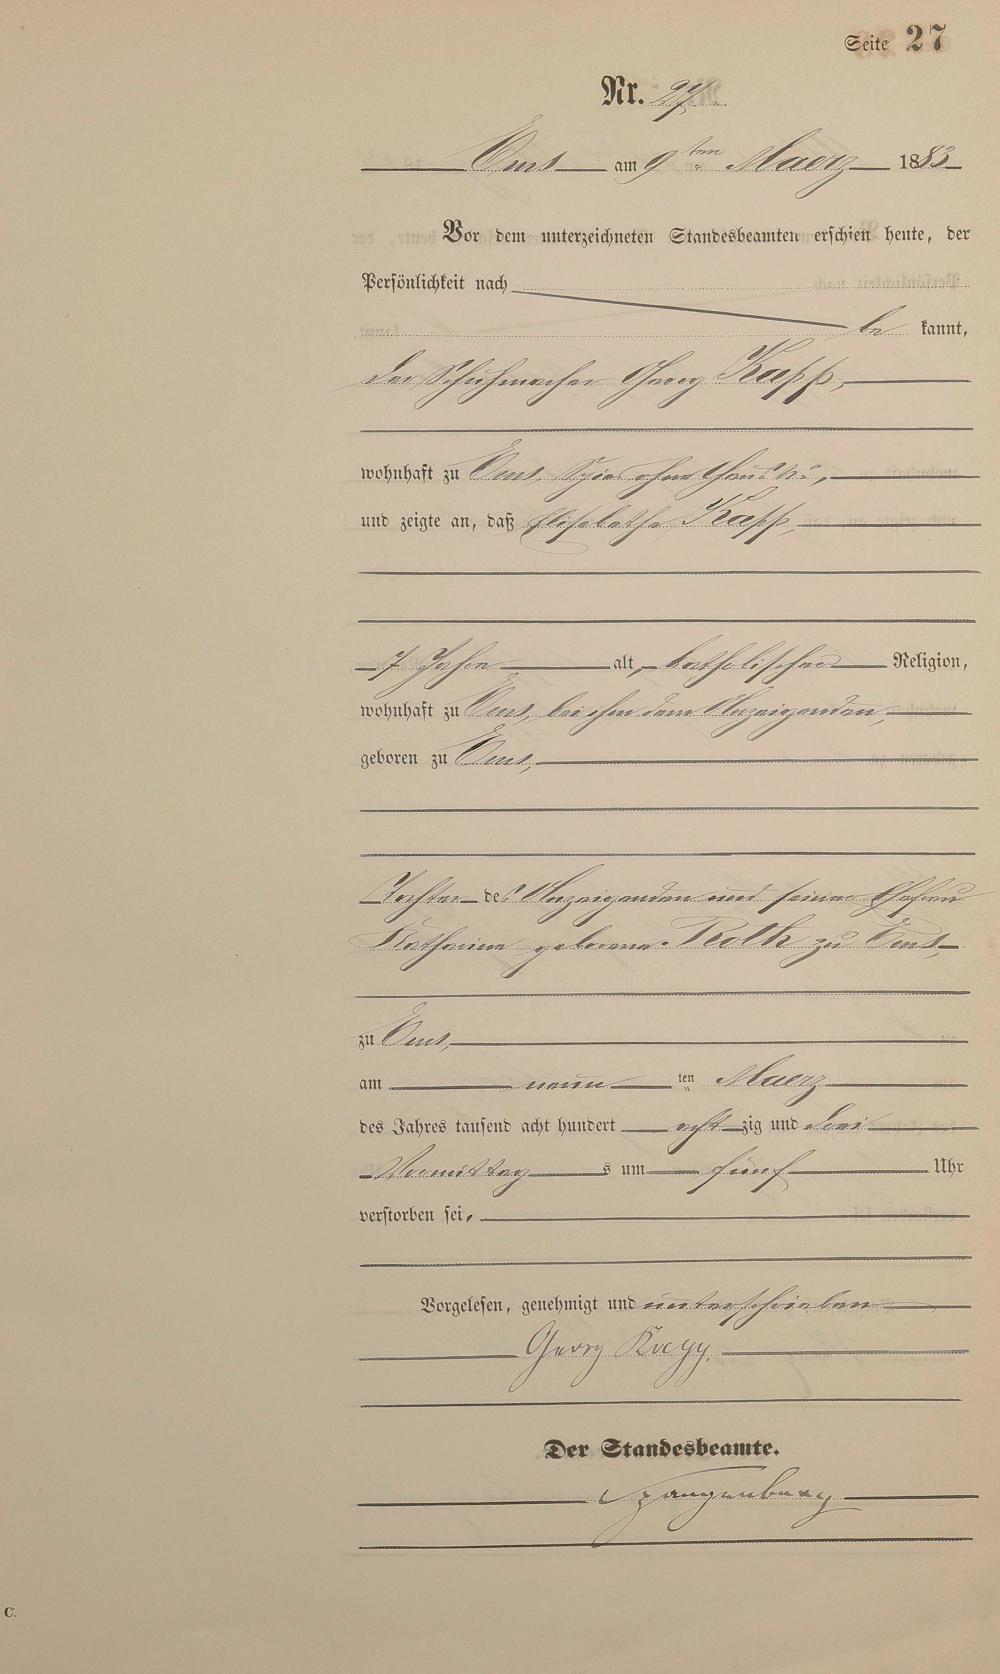 Seite 27
Nr. 27.
Ems am 9ten Maerz 1883
Vor dem unterzeichneten Standesbeamten erschien heute, der
Persönlichkeit nach
be kannt,
der Schuhmacher Georg Kapp,
wohnhaft zu Ems, Spies ohne Haus №,
und zeigte an, daß Elisabetha Kapp,
7 Jahre alt, katholischer Religion,
wohnhaft zu Ems, bei ihm dem Anzeigenden,
geboren zu Ems,
Tochter des Anzeigenden und seiner Ehefrau
Katharine geborene Roth zu Ems,
zu Ems,
am neun ten Maerz
des Jahres tausend acht hundert acht zig und drei
Vormittag s um fünf Uhr
verstorben sei.
Vorgelesen, genehmigt und unterschrieben
Georg Kapp.
Der Standesbeamte.
Spangenberg
C.